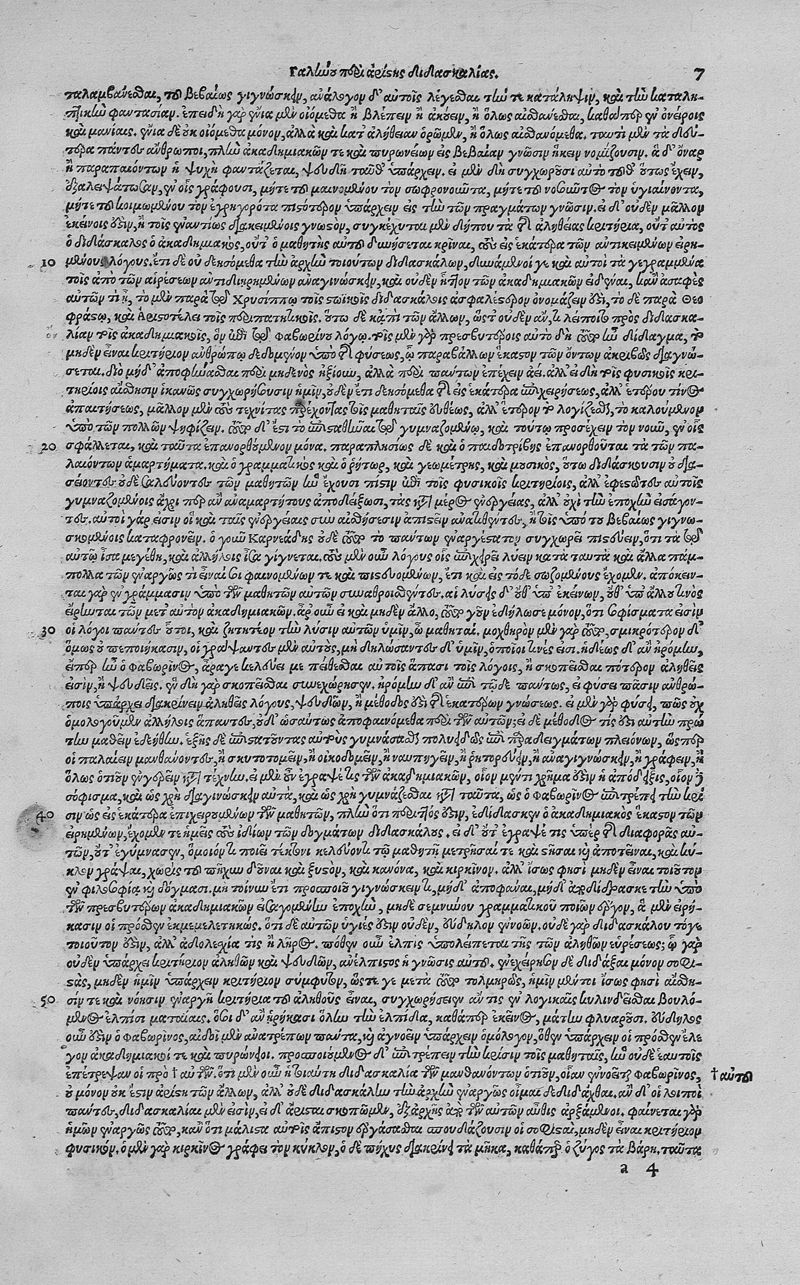 Γαληνοῦ περὶ ἀρίστης διδασκαλίας. 7
ταλαμβάνεσθαι, τοῦ βεβαίως γιγνώσκειν, ἀνάλογον δ' αὐτοῖς λέγεσθαι τήν τε κατάληψιν, καὶ τὴν καταλη-
πτικὴν φαντασίαν. ἐπειδὴ γὰρ ἔνια μὲν οἰόμεθα ἢ βλέπειν ἢ ἀκούειν, ἢ ὅλως αἰσθάνεσθαι, καθάπερ ἐν ὀνείροις
καὶ μανίαις. ἔνια δὲ οὐκ οἰόμεθα μόνον, ἀλλὰ καὶ κατ' ἀλήθειαν ὁρῶμεν, ἢ ὅλως αἰσθανόμεθα. ταυτὶ μὲν τὰ δεύ-
τερα πάντες ἄνθρωποι, πλὴν ἀκαδημαϊκῶν τε καὶ πυρωνείων εἰς βεβαίαν γνῶσιν ἥκειν νομίζουσιν. ἃ δ' ὄναρ
ἢ παραπαιόντων ἡ ψυχὴ φαντάζεται, ψευδῆ ταῦθ' ὑπάρχειν. εἰ μὲν δὴ συγχωροῦσι αὐτὸ τοῦθ' οὕτως ἔχειν,
ἐξαλειψάτωσαν, ἐν οἷς γράφουσι, μήτε τοῦ μαινομένου τὸν σωφρονοῦντα, μήτε τοῦ νοσοῦντος τὸν ὑγιαίνοντα,
μήτε τοῦ κοιμωμένου τὸν ἐγρηγορότα πιστότερον ὑπάρχειν εἰς τὴν τῶν πραγμάτων γνῶσιν. εἰ δ' οὐδὲν μᾶλλον
ἐκείνοις ἐστὶν, ἢ τοῖς ἐναντίως διακειμένοις γνωστὸν, συγκέχυται μὲν δήπου τὰ τῆς ἀληθείας κριτήρια, οὔτ' αὐτὸς
ὁ διδάσκαλος ὁ ἀκαδημαϊκὸς, οὔτ' ὁ μαθητὴς αὐτοῦ δυνήσεται κρῖναι, τοὺς εἰς ἑκάτερα τῶν ἀντικειμένων εἰρη-
10 μένους λόγους. ἔτι δὲ οὐ δεησόμεθα τὴν ἀρχὴν τοιούτων διδασκάλων, δυνάμενοί γε καὶ αὐτοὶ τὰ γεγραμμένα
τοῖς ἀπὸ τῶν αἱρέσεων ἀντιδιῃρημένων ἀναγινώσκειν, καὶ οὐδὲν ἧττον τῶν ἀκαδημαϊκῶν εἰδέναι, κἂν ἀσαφὲς
αὐτῶν τι ᾖ, τὸ μὲν παρὰ τοῦ Χρυσίππῳ τοῖς στωϊκοῖς διδασκάλοις ἀσφαλέστερον ὀνομάζειν ἐστὶ, τὸ δὲ παρὰ Θεο
φράστῳ, καὶ Ἀριστοτέλει τοῖς περιπατητικοῖς. οὕτω δὲ κἀπὶ τῶν ἄλλων, ὥστ' οὐδὲν ἂν, λείποιτο πρὸς διδασκα-
λίαν τοῖς ἀκαδημαϊκοῖς, ὃν ἐπὶ τοῦ Φαβωρίνου λόγῳ. τοῖς μὲν γὰρ πρεσβυτέροις αὐτὸ δὴ τοῦτο ἦν δίδαγμα, τὸ
μηδὲν εἶναι κριτήριον ἀνθρώπῳ δεδομένον ὑπὸ τῆς φύσεως, ᾧ παραβάλλων ἕκαστον τῶν ὄντων ἀκριβῶς διαγνώ-
σεται. διὸ μήδ' ἀποφήνασθαι περὶ μηδενὸς ἠξίουν, ἀλλὰ περὶ πάντων ἐπέχειν ἀεί. ἀλλ' εἰ δὴ τοῖς φυσικοῖς κρι-
τηρίοις αἴσθησιν ἱκανῶς συγχωρήσουσιν ἡμῖν, οὐδὲν ἔτι δεησόμεθα τῆς εἰς ἑκάτερα ἐπιχειρήσεως, ἀλλ' ἑτέρου τινὸς
ἀπαιτήσεως, μᾶλλον μὲν τοὺς τεχνίτας παρέχοντας τοῖς μαθηταῖς εὐθέως, ἀλλ' ἕτερον τὸ λογίζεσθαι, τὸ καλούμενον
ὑπὸ τῶν πολλῶν ψηφίζειν. τοῦτο δ' ἔστι τὸ ἐπιστάθμασθαι τοῦ γυμναζομένῳ, καὶ τούτῳ προσέχειν τὸν νοῦν, ἐν οἷς
20 σφάλλεται, καὶ ταῦτα ἐπανορθούμενον μόνα. παραπλησίως δὲ καὶ ὁ παιδοτρίβης ἐπανορθοῦται τὰ τῶν πα-
λαιόντων ἁμαρτήματα. καὶ ὁ γραμματικὸς καὶ ὁ ῥήτωρ, καὶ γεωμέτρης, καὶ μουσικὸς, οὕτω διδάσκουσιν οὐ δια-
σείοντες οὐδὲ σαλεύοντες τῶν μαθητῶν ἣν ἔχουσι πίστιν ἐπὶ τοῖς φυσικοῖς κριτηρίοις, ἀλλ' ἐφεξῆς τούτοις
γυμναζομένοις ἄχρι περ ἂν ἀναμαρτήτους ἀποδείξωσι, τὰς κατὰ μέρος ἐνεργείας, ἀλλ' οὐχὶ τὴν ἐποχὴν εἰσάγον-
τες. αὐτοὶ γάρ εἰσιν οἱ καὶ ταῖς ἐναργείαις σὺν αἰσθήσεσιν ἀπιστεῖν ἀναπείθοντες, ἢ τοῖς ὑπὸ τοῦ βεβαίως γιγνω-
σκομένοις καταφρονεῖν. ὁ γοῦν Καρνεάδης οὐδὲ τοῦτο τὸ πάντων ἐναργέστατον συγχωρεῖ πιστεύειν, ὅτι τὰ τοῦ
αὐτῷ ἴσα μεγέθη, καὶ ἀλλήλοις ἴσα γίγνεται. τοὺς μὲν οὖν λόγους οἷς ἐπιχειρεῖ λύειν κατὰ ταῦτα καὶ ἄλλα πάμ-
πολλα τῶν ἐναργῶς τι εἶναί σοι φαινομένων τε καὶ πιστευομένων, ἔτι καὶ εἰς τόδε σωζομένους ἔχομεν. ἀπόκειν-
ται γὰρ ἐν γράμμασιν ὑπὸ τῶν μαθητῶν αὐτῶν συναθροισθέντες. αἱ λύσεις δ' οὔθ' ὑπ' ἐκείνων, οὔθ' ὑπ' ἄλλου τινὸς
εἴρηνται τῶν μετ' αὐτὸν ἀκαδημαϊκῶν. ἆρ' οὖν εἰ καὶ μηδὲν ἄλλο, τοῦτο γοῦν ἐδήλωσε μόνον, ὅτι σοφίσματα εἰσὶν
30 οἱ λόγοι πάντες οὗτοι, καὶ ζητητέον τὴν λύσιν αὐτῶν ὑμῖν, ὦ μαθηταί. μοχθηρὸν μὲν γὰρ τοῦτο, σμικρότερον δ'
ὅμως οὗ πεποιήκασιν, οἱ γράψαντες μὲν αὐτοὺς, μὴ δηλώσαντες δ' ὑμῖν, ὁποῖοί τινές εἰσι. ἡδέως δ' ἂν ἠρόμην,
εἴπερ ἦν ὁ Φαβωρῖνος, ἆρά γε κελεύει με πείθεσθαι αὐτοῖς ἅπασι τοῖς λόγοις, ἢ σκοπεῖσθαι πότερον ἀληθεῖς
εἰσὶν, ἢ ψευδεῖς. ἐν δὴ γὰρ σκοπεῖσθαι συνεχώρησεν. ἠρόμην δ' ἂν ἐπὶ τῷδε πάντως, εἰ φύσει πᾶσιν ἀνθρώ-
ποις ὑπάρχει διακρίνειν ἀληθεῖς λόγους, ψευδῶν, ἢ μέθοδός ἐστι τῆς ἑκατέρων γνώσεως. εἰ μὲν γὰρ φύσει, πῶς οὐχ
ὁμολογοῦμεν ἀλλήλοις ἅπαντες, οὐδ' ὡσαύτως ἀποφαινόμεθα περὶ τῶν αὐτῶν; εἰ δὲ μέθοδός τις ἐστὶ αὐτὴν πρώ
την μαθεῖν ἐδεήθην. ἑξῆς δὲ ἐπιστάντας αὐτοὺς γυμνάσασθαι πολυειδῶς ἐπὶ παραδειγμάτων πλειόνων, ὥσπερ
οἱ παλαίειν μανθάνοντες, ἢ σκυτοτομεῖν, ἢ οἰκοδομεῖν, ἢ ναυπηγεῖν, ἢ ῥητορεύειν, ἢ ἀναγινώσκειν, ἢ γράφειν, ἢ
ὅλως ὁτιοῦν ἐνεργεῖν κατὰ τέχνην. εἰ μὲν οὖν ἔγραψέ τις τῶν ἀκαδημαϊκῶν, οἷον μέν τι χρῆμα ἐστὶν ἡ ἀπόδειξις, οἷον δὲ
σόφισμα, καὶ ὡς χρὴ διαγινώσκειν αὐτὰ, καὶ ὡς χρὴ γυμνάζεσθαι κατὰ ταῦτα, ὡς ὁ Φαβωρῖνος ἐπιτρέπει τὴν κρί
40 σιν ὡς εἰς ἑκάτερα ἐπιχειρουμένων τῶν μαθητῶν, πλὴν ὅτι περιττός ἐστιν, ἐδίδασκεν ὁ ἀκαδημαϊκὸς ἕκαστον τῶν
εἰρημένων, ἔχομεν τε ἡμεῖς τοὺς ἰδίων τῶν δογμάτων διδασκάλους. εἰ δ' οὔτ' ἔγραψέ τις ὑπὲρ τῆς διαφορᾶς αὐ-
τῶν, οὔτ' ἐγύμνασεν, ὅμοιόν τι ποιεῖ τέκτονι κελεύοντι τῷ μαθητῇ μετρῆσαί τε καὶ στῆσαι καὶ ἀποτεῖναι, καὶ κύ-
κλον γράψαι, χωρὶς τοῦ πῆχυν δοῦναι καὶ ξυστὸν, καὶ κανόνα, καὶ κιρκῖνον. ἀλλ' ἴσως φησὶ μηδὲν εἶναι τοιοῦτον
ἐν φιλοσοφίας δόγμασι. μὴ τοίνυν ἔτι προσποιοῦ γιγνώσκειν τι, μήδ' ἀποφαίνου, μήδ' ἀποδίδρασκε τὴν ὑπὸ
τῶν πρεσβυτέρων ἀκαδημαϊκῶν εἰσαγομένην ἐποχὴν, μηδὲ σεμνύνου γραμματικοῦ ποιῶν ἔργον, ἃ μὲν εἰρή-
κασιν οἱ πρόσθεν ἐκμεμελετηκώς. ὅτι δὲ αὐτῶν ὑγιές ἐστιν οὐδὲν, εὔδηλον ἐννοῶν. οὐδὲ γὰρ διδασκάλου τό γε
τοιοῦτόν ἐστιν, ἀλλ' ἀδολεσχία τις ἢ λῆρος. πόθεν οὖν ἐλπὶς ὑπολείπεται τῆς τῶν ἀληθῶν εὑρέσεως; ᾧ γὰρ
οὐδὲν ὑπάρχει κριτήριον ἀληθῶν καὶ ψευδῶν, ἀνέλπιστος ἡ γνῶσις αὐτοῦ. ἐνεχείρησεν δὲ διδάξαι μόνον σοφι-
στὰς, μηδὲν ἡμῖν ὑπάρχειν κριτήριον σύμφυτον, ὥστε γε μετὰ τοῦτο τολμηρῶς, ἡμῖν μέντοι ἴσως φησὶ αἴσθη-
50 σίν τε καὶ νόησιν ἐναργῆ κριτήρια τοῦ ἀληθοῦς εἶναι, συγχωρήσειεν ἄν τις ἐν λογικαῖς κυλινδεῖσθαι βουλό-
μενος ἐλπίσι ματαίαις. ὅσοι δ' ἀνῃρήκασι ὅλην τὴν ἐλπίδα, καθάπερ ἐκεῖνος, μάτην φλυαροῦσι. εὔδηλος
οὖν ἐστὶν ὁ Φαβωρῖνος, αἰδοῖ μὲν ἀνατρέπων πάντα, καὶ ἀγνοεῖν ὑπάρχειν ὁμολογῶν, ὅθεν ὑπάρχειν οἱ πρόσθεν ἔλε
γον ἀκαδημαϊκοί τε καὶ πυρώνειοι. προσποιούμενος δ' ἐπιτρέπειν τὴν κρίσιν τοῖς μαθηταῖς, ἣν οὐδὲ ἑαυτοῖς
ἐπέτρεψαν οἱ πρὸ † αὐτῶν. ὅτι μὲν οὖν ἡ τοιαύτη διδασκαλία τῶν μανθανόντων ὁτιοῦν, οἵαν ἐννοεῖται Φαβωρῖνος, † αὐτοῦ
οὐ μόνον οὐκ ἔστιν ἀρίστη τῶν ἄλλων, ἀλλ' οὐδὲ διδασκαλίαν τὴν ἀρχὴν ἐναργῶς οἶμαι δεδιδάχθαι. ἂν δ' οἱ λοιποὶ
πάντες, διδασκαλίαι μὲν εἰσὶν, εἰ δ' ἄρισται σκοπῶμεν, ἐξαρχῆς ἀπὸ τῶν αὐτῶν αὖθις ἀρξάμενοι. φαίνεται γὰρ
ἡμῶν ἐναργῶς τοῦτο, κἂν ὅτι μάλιστα αὐτοῖς ἄπιστον ἐργάσασθαι σπουδάζουσιν οἱ σοφισταὶ, μηδὲν εἶναι κριτήριον
φυσικόν. ὁ μὲν γὰρ κιρκῖνος γράφει τὸν κύκλον, ὁ δὲ πῆχυς διακρίνει τὰ μήκη, καθάπερ ὁ ζυγὸς τὰ βάρη. ταῦτα
a 4